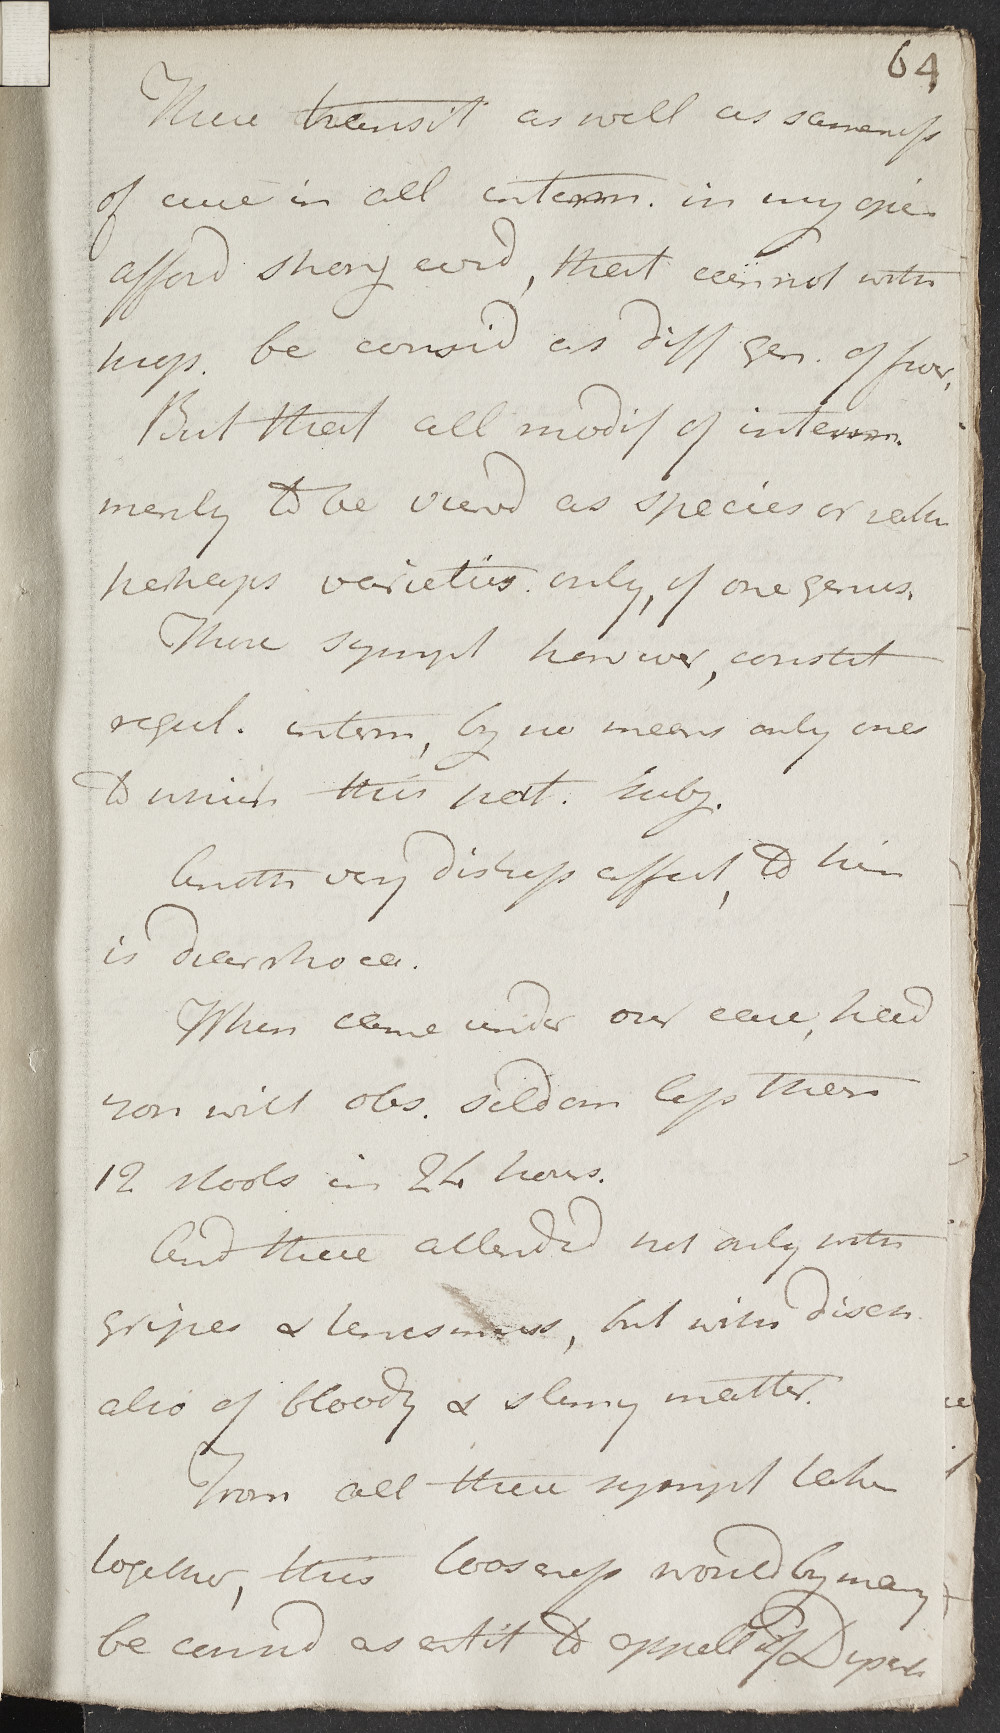 64
These transit as well as sameness
of cure in all interm. in my opin
afford strong evid, that cannot with
prop. be consid as diff gen. of fever,
But that all modif of interm.
merely to be viewd as species or rather
perhaps varieties only, of one genus.
These sympt however, constit
regul. interm, by no means only ones
to which this pat. subj.
Another very distress affect, to him
is diarrhoea.
When came under our care, had
you will obs. seldom less than
12 stools in 24 hours.
And these attended not only with
gripes & tenesmus, but with disch
also of bloody & slimy matter.
From all these sympt taken
together, this looseness would by many
be consid as entit to appell of Dysent